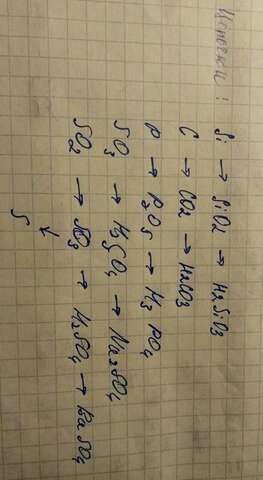 Цепочки!
Si → SiO2 → H2SiO3
C → CO2 → H2CO3
P → P2O5 → H3PO4
SO3 → H2SO4 → Na2SO4
SO2 → SO3 → H2SO4 → BaSO4
↓
S